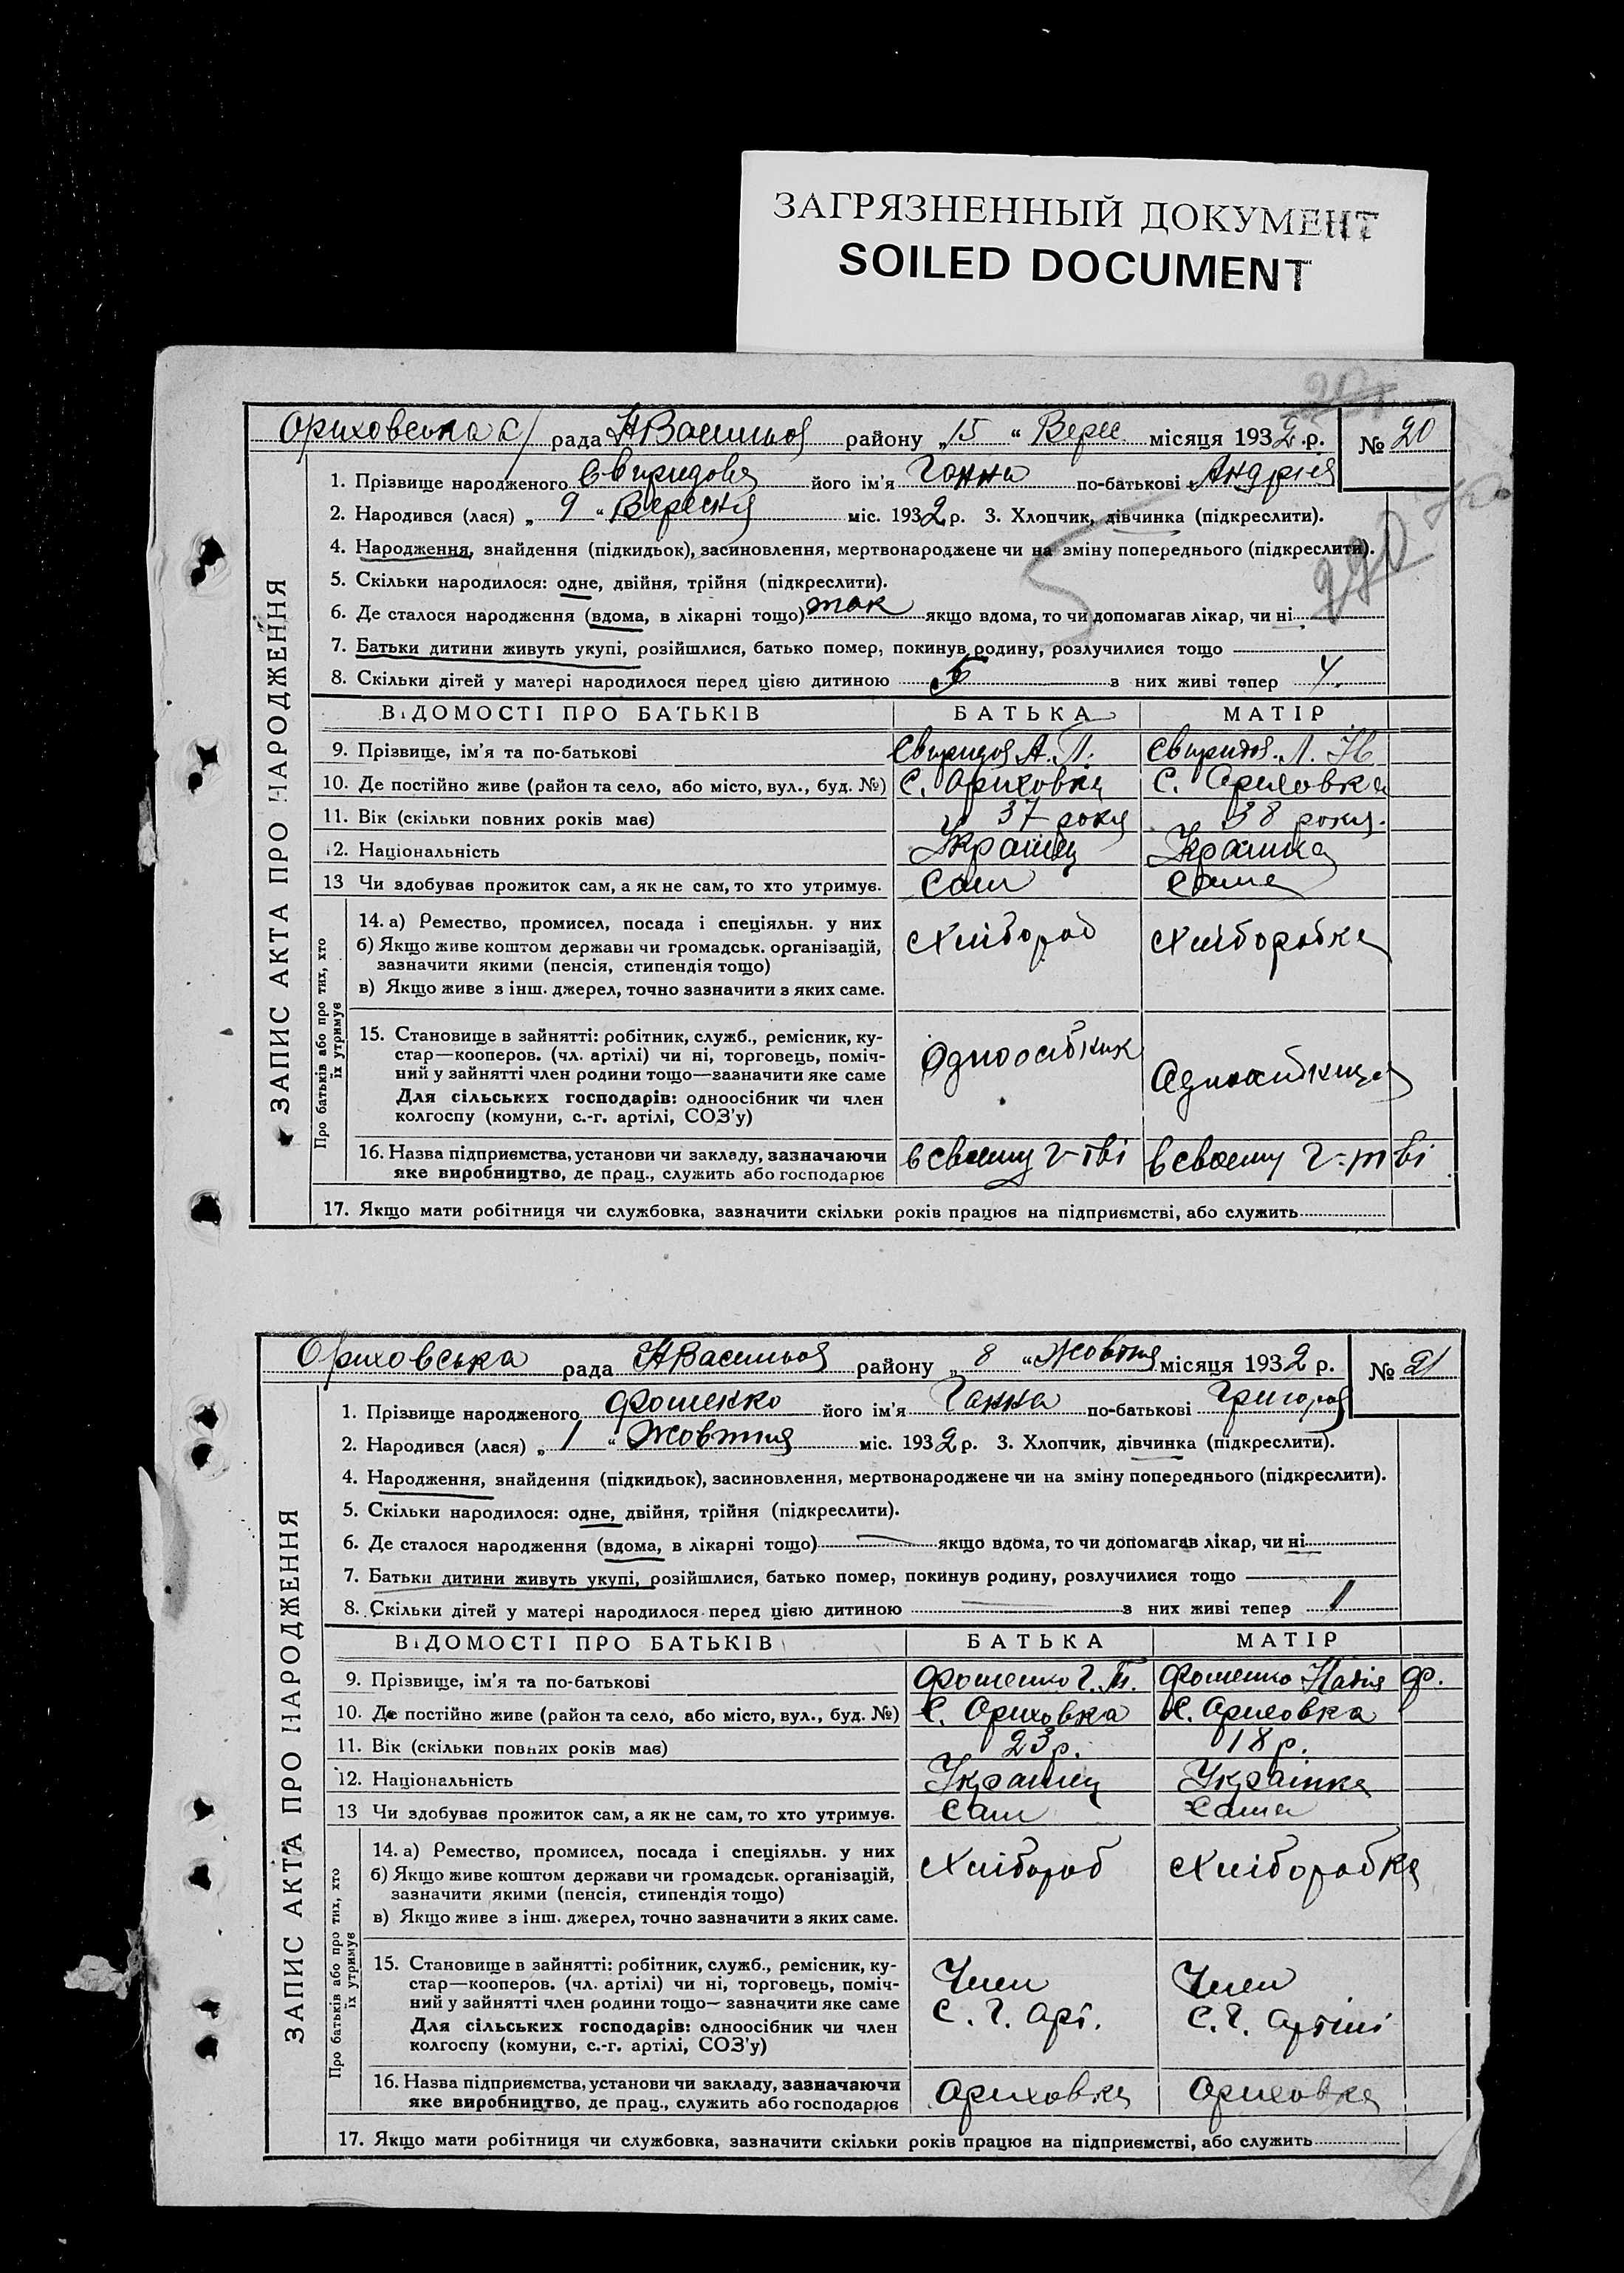 ЗАГРЯЗНЕННЫЙ ДОКУМЕНТ
SOILED DOCUMENT
ЗАПИС АКТА ПРО НАРОДЖЕННЯ
Ориховська с/ рада НВасильов району „15“ Верес. місяця 1932 р. № 20
1. Прізвище народженого Свиридова його ім'я Ганна по-батькові Андрієв
2. Народився (лася) „9“ Вересня міс. 1932 р. 3. Хлопчик, дівчинка (підкреслити).
4. Народження, знайдення (підкидьок), засиновлення, мертвонароджене чи на зміну попереднього (підкреслити).
5. Скільки народилося: одне, двійня, трійня (підкреслити).
6. Де сталося народження (вдома, в лікарні тощо) так якщо вдома, то чи допомагав лікар, чи ні
7. Батьки дитини живуть укупі, розійшлися, батько помер, покинув родину, розлучилися тощо
8. Скільки дітей у матері народилося перед цією дитиною 5 з них живі тепер 4.
ВІДОМОСТІ ПРО БАТЬКІВ БАТЬКА МАТІР
9. Прізвище, ім'я та по-батькові Свиридов А. Л. Свиридов. Л. Н
10. Де постійно живе (район та село, або місто, вул., буд. №) С. Ориховка С. Ориховка
11. Вік (скільки повних років має) 37 роки 38 роки.
12. Національність Українц Українка
13 Чи здобував прожиток сам, а як не сам, то хто утримує. Сам Сама
Про батьків або про тих, хто їх утримує
14. а) Ремество, промисел, посада і спеціяльн. у них
б) Якщо живе коштом держави чи громадськ. організацій, Хлібороб Хліборобка
зазначити якими (пенсія, стипендія тощо)
в) Якщо живе з інш. джерел, точно зазначити з яких саме.
15. Становище в зайнятті: робітник, служб., ремісник, ку-
стар—кооперов. (чл. артілі) чи ні, торговець, поміч- Одноосібник
ний у зайнятті член родини тощо—зазначити яке саме Одноосібниця
Для сільських господарів: одноосібник чи член
колгоспу (комуни, с.-г. артілі, СОЗ'у)
16. Назва підприємства, установи чи закладу, зазначаючи в своєму г-тві в своєму г-тві
яке виробництво, де прац., служить або господарює
17. Якщо мати робітниця чи службовка, зазначити скільки років працює на підприємстві, або служить
ЗАПИС АКТА ПРО НАРОДЖЕННЯ
Ориховська рада НВасильов району „8“ Жовтня місяця 1932 р. № 21
1. Прізвище народженого Фоменко його ім'я Ганна по-батькові Григоров
2. Народився (лася) „1“ Жовтня міс. 1932 р. 3. Хлопчик, дівчинка (підкреслити).
4. Народження, знайдення (підкидьок), засиновлення, мертвонароджене чи на зміну попереднього (підкреслити).
5. Скільки народилося: одне, двійня, трійня (підкреслити).
6. Де сталося народження (вдома, в лікарні тощо) якщо вдома, то чи допомагав лікар, чи ні
7. Батьки дитини живуть укупі, розійшлися, батько помер, покинув родину, розлучилися тощо
8. Скільки дітей у матері народилося перед цією дитиною — з них живі тепер 1
ВІДОМОСТІ ПРО БАТЬКІВ БАТЬКА МАТІР
9. Прізвище, ім'я та по-батькові Фоменко Г. Т. Фоменко Надія Ф.
10. Де постійно живе (район та село, або місто, вул., буд. №) С. Ориховка С. Ориховка
11. Вік (скільки повних років має) 23 р. 18 р.
12. Національність Українц Українка
13 Чи здобував прожиток сам, а як не сам, то хто утримує. Сам Сама
Про батьків або про тих, хто їх утримує
14. а) Ремество, промисел, посада і спеціяльн. у них
б) Якщо живе коштом держави чи громадськ. організацій, Хлібороб Хліборобка
зазначити якими (пенсія, стипендія тощо)
в) Якщо живе з інш. джерел, точно зазначити з яких саме.
15. Становище в зайнятті: робітник, служб., ремісник, ку-
стар—кооперов. (чл. артілі) чи ні, торговець, поміч- Член Член
ний у зайнятті член родини тощо—зазначити яке саме С. Г. Арт. С. Г. Артілі
Для сільських господарів: одноосібник чи член
колгоспу (комуни, с.-г. артілі, СОЗ'у)
16. Назва підприємства, установи чи закладу, зазначаючи Ориховка Ориховка
яке виробництво, де прац., служить або господарює
17. Якщо мати робітниця чи службовка, зазначити скільки років працює на підприємстві, або служить